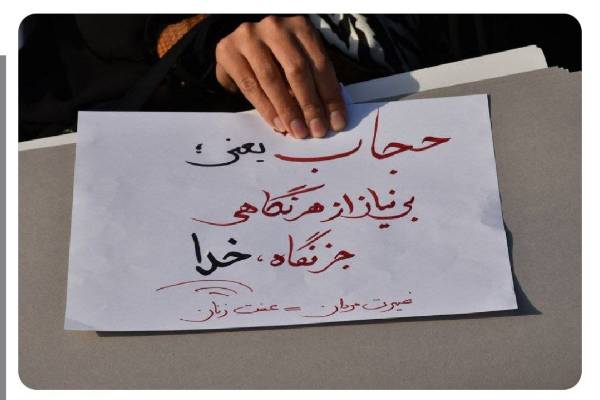 حجاب یعنی؛
بی نیاز از هر نگاهی
جز نگاه، خدا
غیرت مردان = عفت زنان